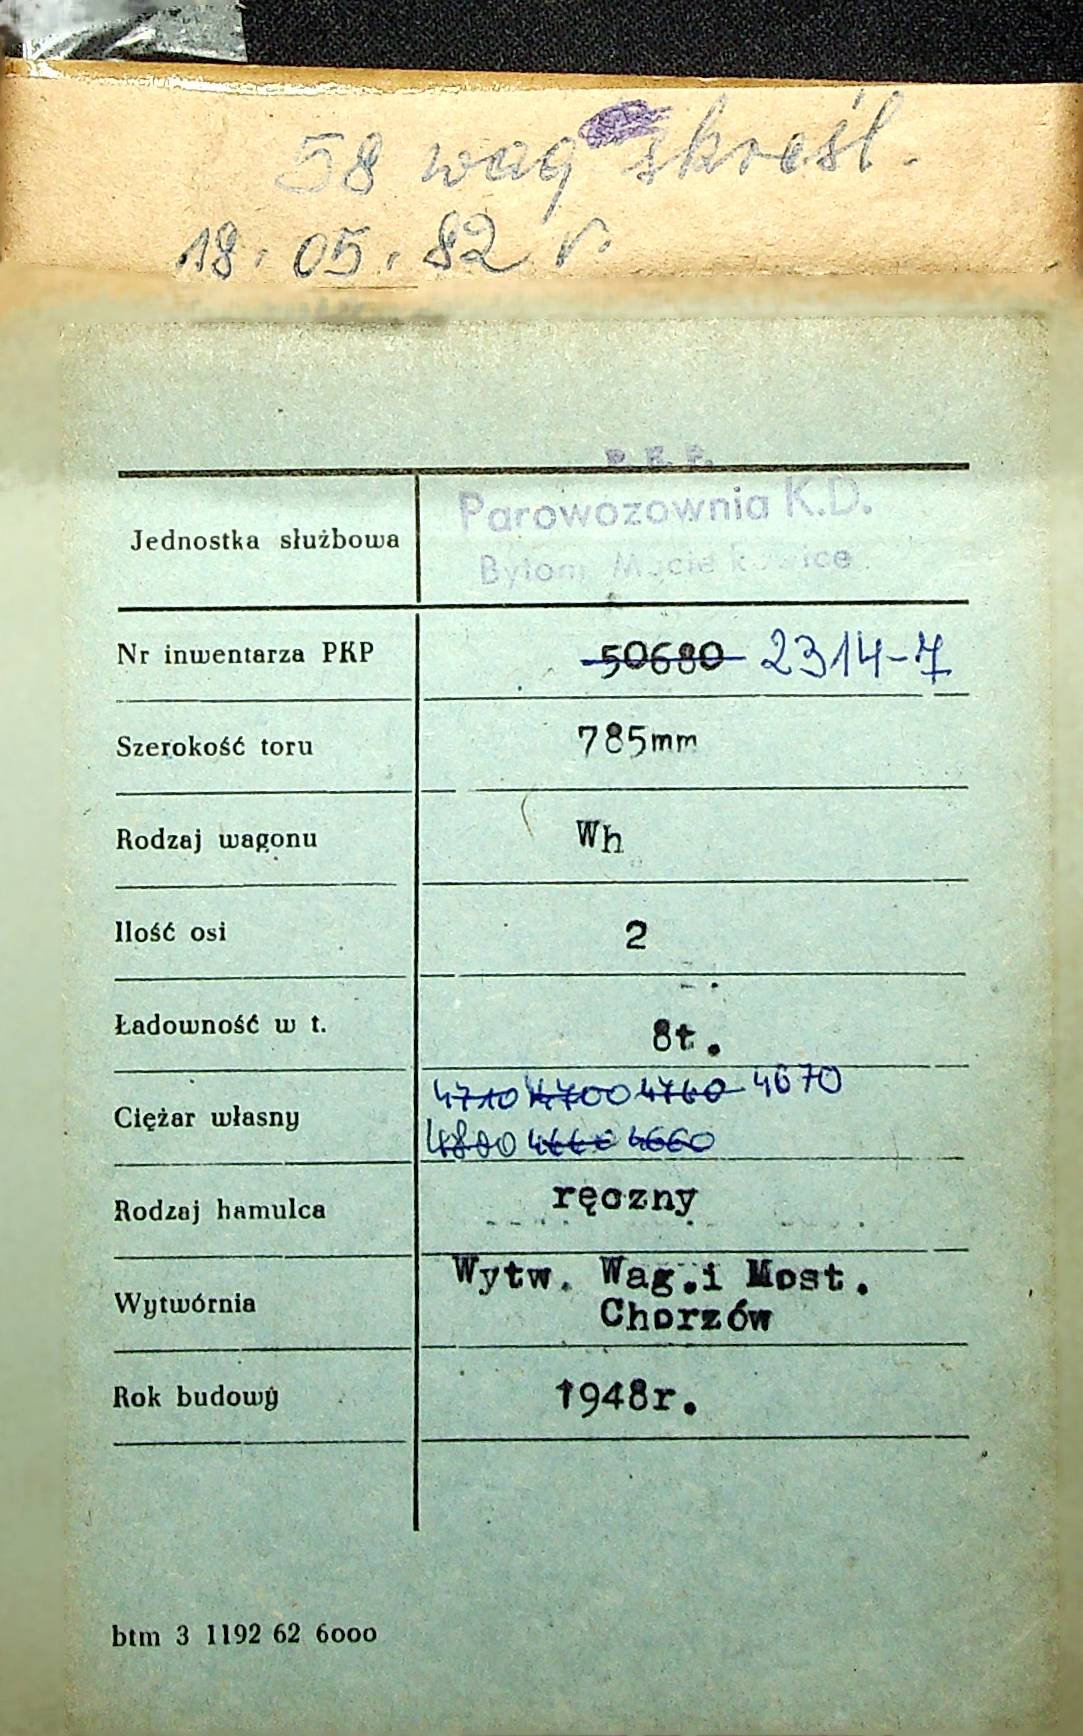 58 wag skreśl.
18. 05. 82 r.
Jednostka służbowa
Parowozownia K.D.
Bytom
Nr inwentarza PKP 50680 2314-7
Szerokość toru 785mm
Rodzaj wagonu Wh
Ilość osi 2
Ładowność w t. 8t.
Ciężar własny 4710 4700 4760 4670
4800 4660
Rodzaj hamulca ręczny
Wytwórnia Wytw. Wag.i Most.
Chorzów
Rok budowy 1948r.
btm 3 1192 62 6000